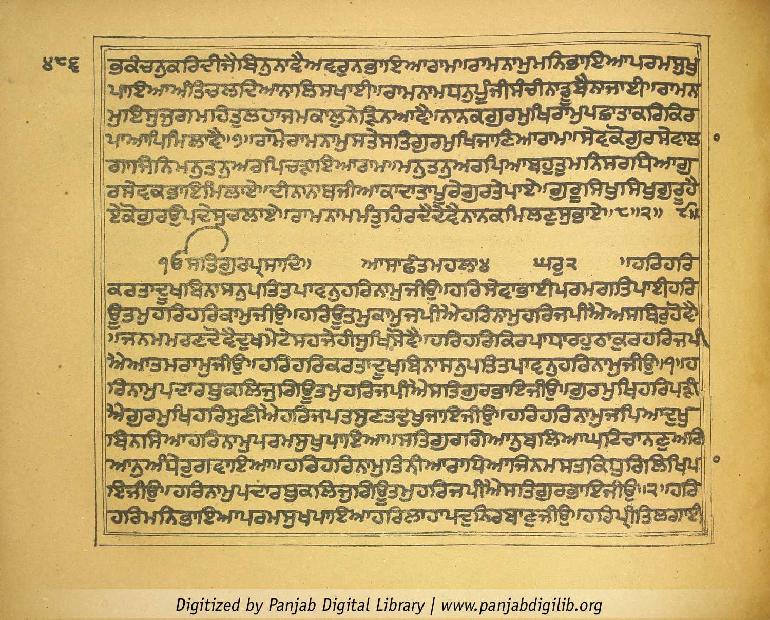 ੪੮੬
ਭਕੰਚਨੁਕਰਿਦੀਜੈਬਿਨੁਨਾਵੈਅਵਰੁਨਭਾਇਆਰਾਮ॥ਰਾਮਨਾਮੁਮਨਿਭਾਇਆਪਰਮਸੁਖੁ
ਪਾਇਆਅੰਤਿਚਲਦਿਆਨਾਲਿਸਖਾਈ॥ਰਾਮਨਾਮਧਨੁਪੂੰਜੀਸੰਚੀਨਾਡੂਬੈਨਜਾਈ॥ਰਾਮਨਾ
ਮੁਇਸੁਜੁਗਮਹਿਤੁਲਹਾਜਮਕਾਲੁਨੇੜਿਨਆਵੈ॥ਨਾਨਕਗੁਰਮੁਖਿਰਾਮੁਪਛਾਤਾਕਰਿਕਿਰ
ਪਾਆਪਿਮਿਲਾਵੈ॥੧॥ਰਾਮੋਰਾਮਨਾਮੁਸਤੇਸਤਿਗੁਰਮੁਖਿਜਾਣਿਆਰਾਮ॥ਸੇਵਕੋਗੁਰਸੇਵਾਲਾ
ਗਾਜਿਨਿਮਨੁਤਨੁਅਰਪਿਚੜਾਇਆਰਾਮ॥ਮਨੁਤਨੁਅਰਪਿਆਬਹੁਤੁਮਨਿਸਰਧਿਆਗੁ
ਰਸੇਵਕਭਾਇਮਿਲਾਏ॥ਦੀਨਾਨਾਥੁਜੀਆਕਾਦਾਤਾਪੂਰੇਗੁਰਤੇਪਾਏ॥ਗੁਰੂਸਿਖੁਸਿਖੁਗੁਰੂਹੈ
ਏਕੋਗੁਰਉਪਦੇਸੁਚਲਾਏ॥ਰਾਮਨਾਮਮੰਤੁਹਿਰਦੈਦੇਵੈਨਾਨਕਮਿਲਣੁਸੁਭਾਏ॥੮॥੨॥
ੴਸਤਿਗੁਰਪ੍ਰਸਾਦਿ॥ ਆਸਾਛੰਤਮਹਲਾ੪ ਘਰੁ੨ ॥ਹਰਿਹਰਿ
ਕਰਤਾਦੂਖਬਿਨਾਸਨੁਪਤਿਤਪਾਵਨੁਹਰਿਨਾਮੁਜੀਉ॥ਹਰਿਸੇਵਾਭਾਈਪਰਮਗਤਿਪਾਈਹਰਿ
ਊਤਮੁਹਰਿਹਰਿਕਾਮੁਜੀਉ॥ਹਰਿਊਤਮੁਕਾਮੁਜਪੀਐਹਰਿਨਾਮੁਹਰਿਜਪੀਐਅਸਥਿਰੁਹੋਵੈ
॥ਜਨਮਮਰਣਦੋਵੈਦੁਖਮੇਟੇਸਹਜੇਹੀਸੁਖਿਸੋਵੈ॥ਹਰਿਹਰਿਕਿਰਪਾਧਾਰਹੁਠਾਕੁਰਹਰਿਜਪੀ
ਐਆਤਮਰਾਮੁਜੀਉ॥ਹਰਿਹਰਿਕਰਤਾਦੂਖਬਿਨਾਸਨੁਪਤਿਤਪਾਵਨੁਹਰਿਨਾਮੁਜੀਉ॥੧॥ਹ
ਰਿਨਾਮੁਪਦਾਰਥੁਕਲਿਜੁਗਿਊਤਮੁਹਰਿਜਪੀਐਸਤਿਗੁਰਭਾਇਜੀਉ॥ਗੁਰਮੁਖਿਹਰਿਪੜੀ
ਐਗੁਰਮੁਖਿਹਰਿਸੁਣੀਐਹਰਿਜਪਤਸੁਣਤਦੁਖੁਜਾਇਜੀਉ॥ਹਰਿਹਰਿਨਾਮੁਜਪਿਆਦੁਖੁ
ਬਿਨਸਿਆਹਰਿਨਾਮੁਪਰਮਸੁਖੁਪਾਇਆ॥ਸਤਿਗੁਰਗਿਆਨੁਬਲਿਆਘਟਿਚਾਨਣੁਅਗਿ
ਆਨੁਅੰਧੇਰੁਗਵਾਇਆ॥ਹਰਿਹਰਿਨਾਮੁਤਿਨੀਆਰਾਧਿਆਜਿਨਮਸਤਕਿਧੁਰਿਲਿਖਿਪਾ
ਇਜੀਉ॥ਹਰਿਨਾਮੁਪਦਾਰਥੁਕਲਿਜੁਗਿਊਤਮੁਹਰਿਜਪੀਐਸਤਿਗੁਰਭਾਇਜੀਉ॥੨॥ਹਰਿ
ਹਰਿਮਨਿਭਾਇਆਪਰਮਸੁਖਪਾਇਆਹਰਿਲਾਹਾਪਦੁਨਿਰਬਾਣੁਜੀਉ॥ਹਰਿਪ੍ਰੀਤਿਲਗਾਈ
Digitized by Panjab Digital Library | www.panjabdigilib.org